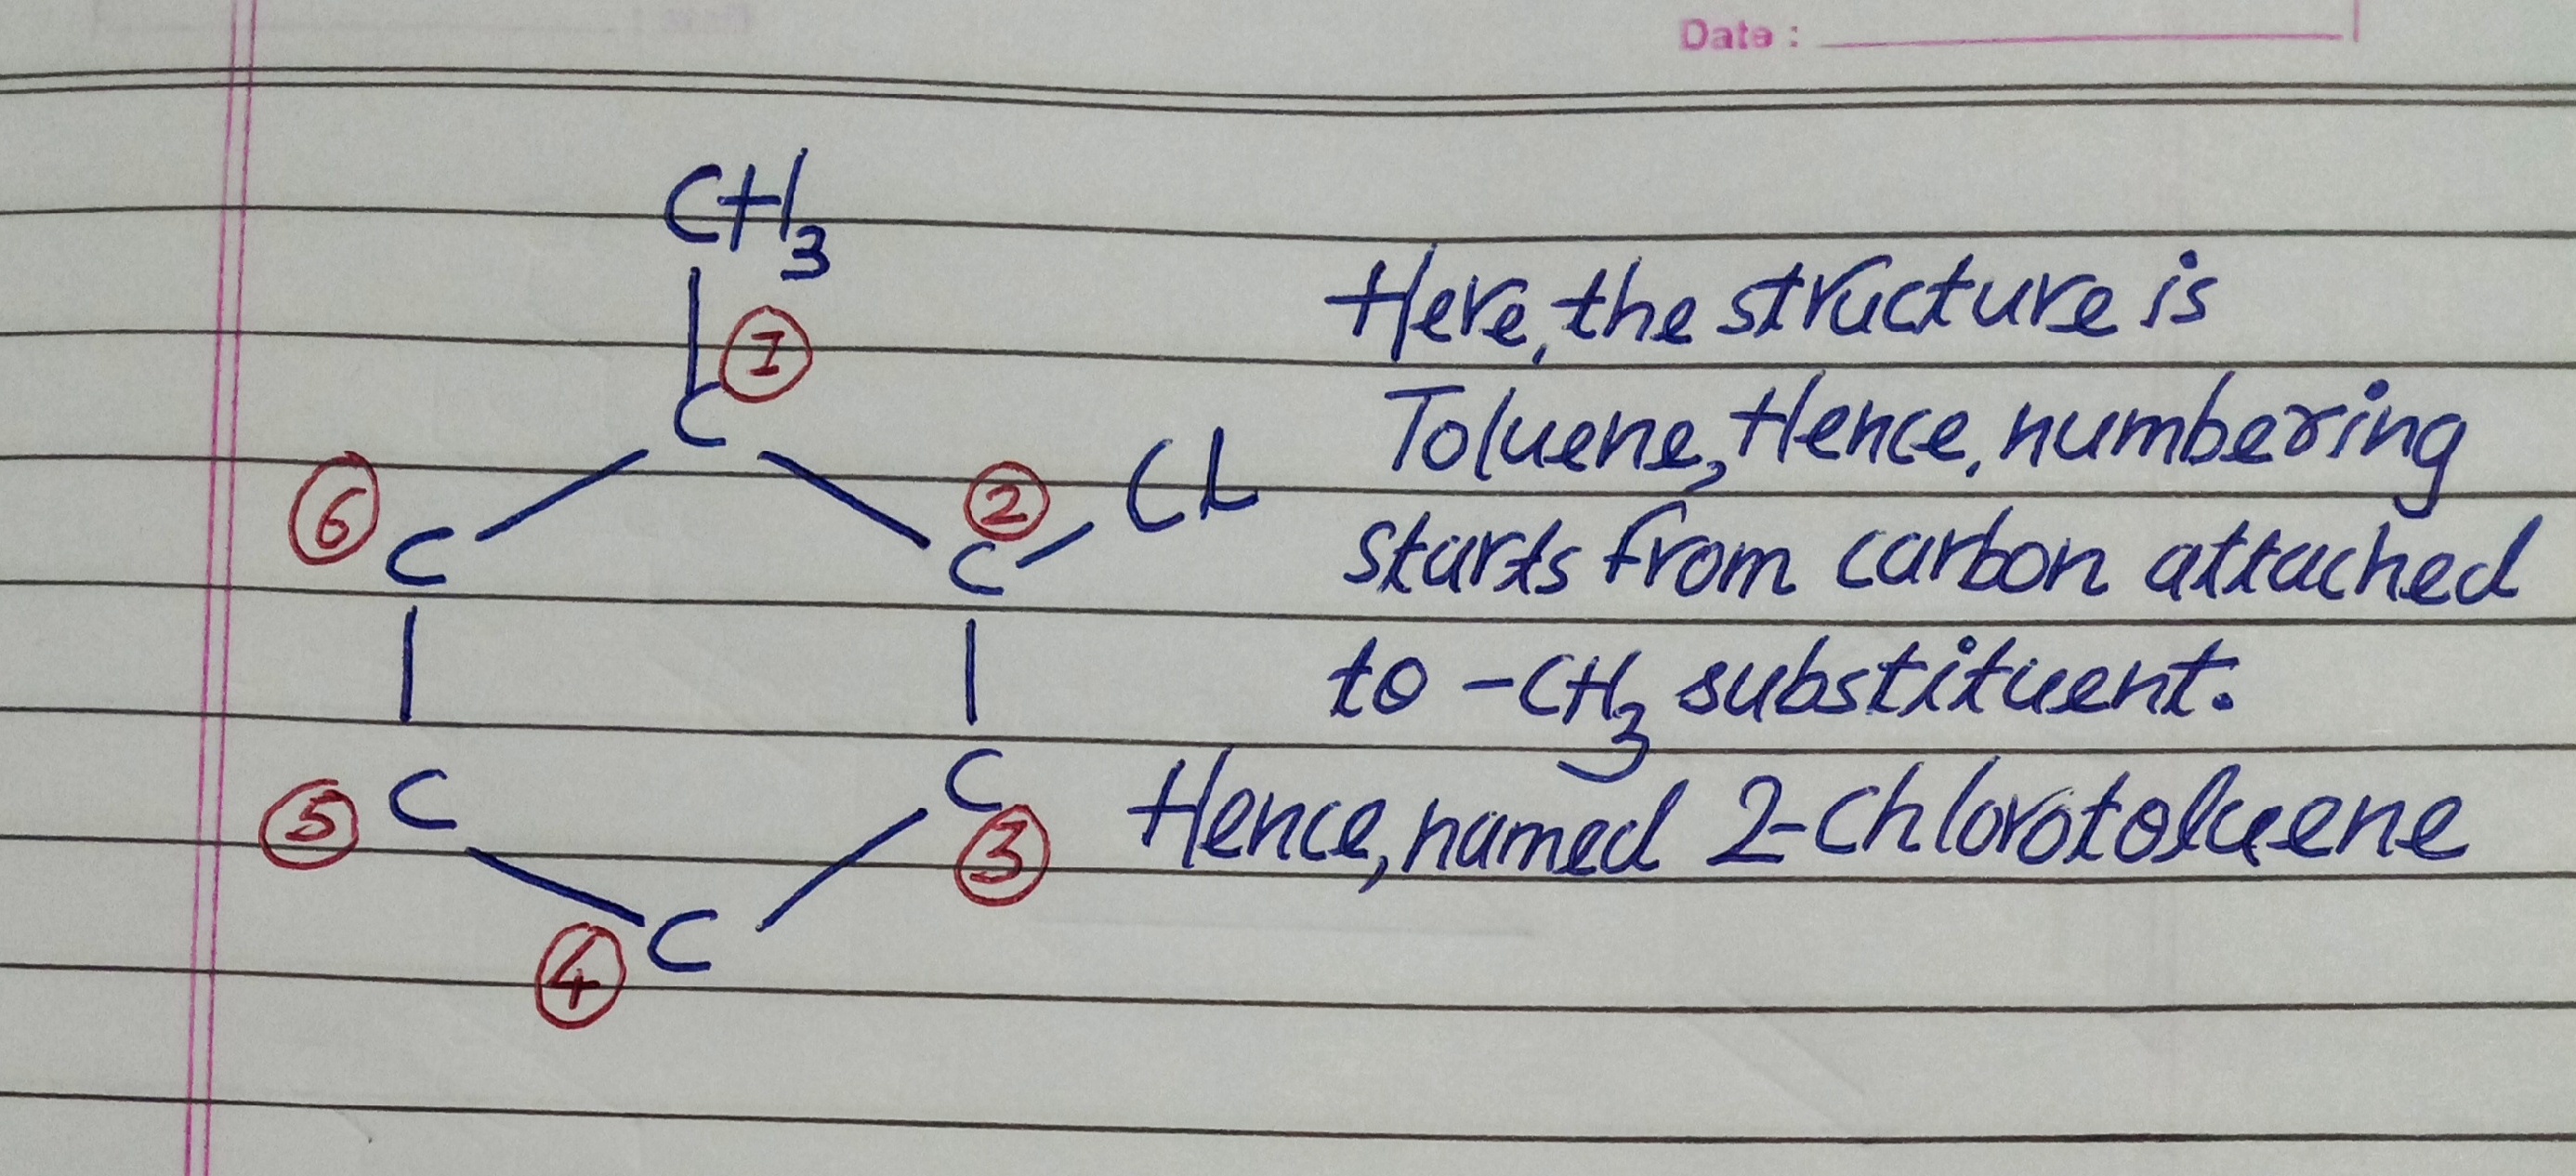 Date :
CH3
1
C
6
2
Cl
C
C
5
C
C
3
4
C
Here, the structure is
Toluene, Hence, numbering
starts from carbon attached
to -CH3 substituent.
Hence, named 2-Chlorotoluene